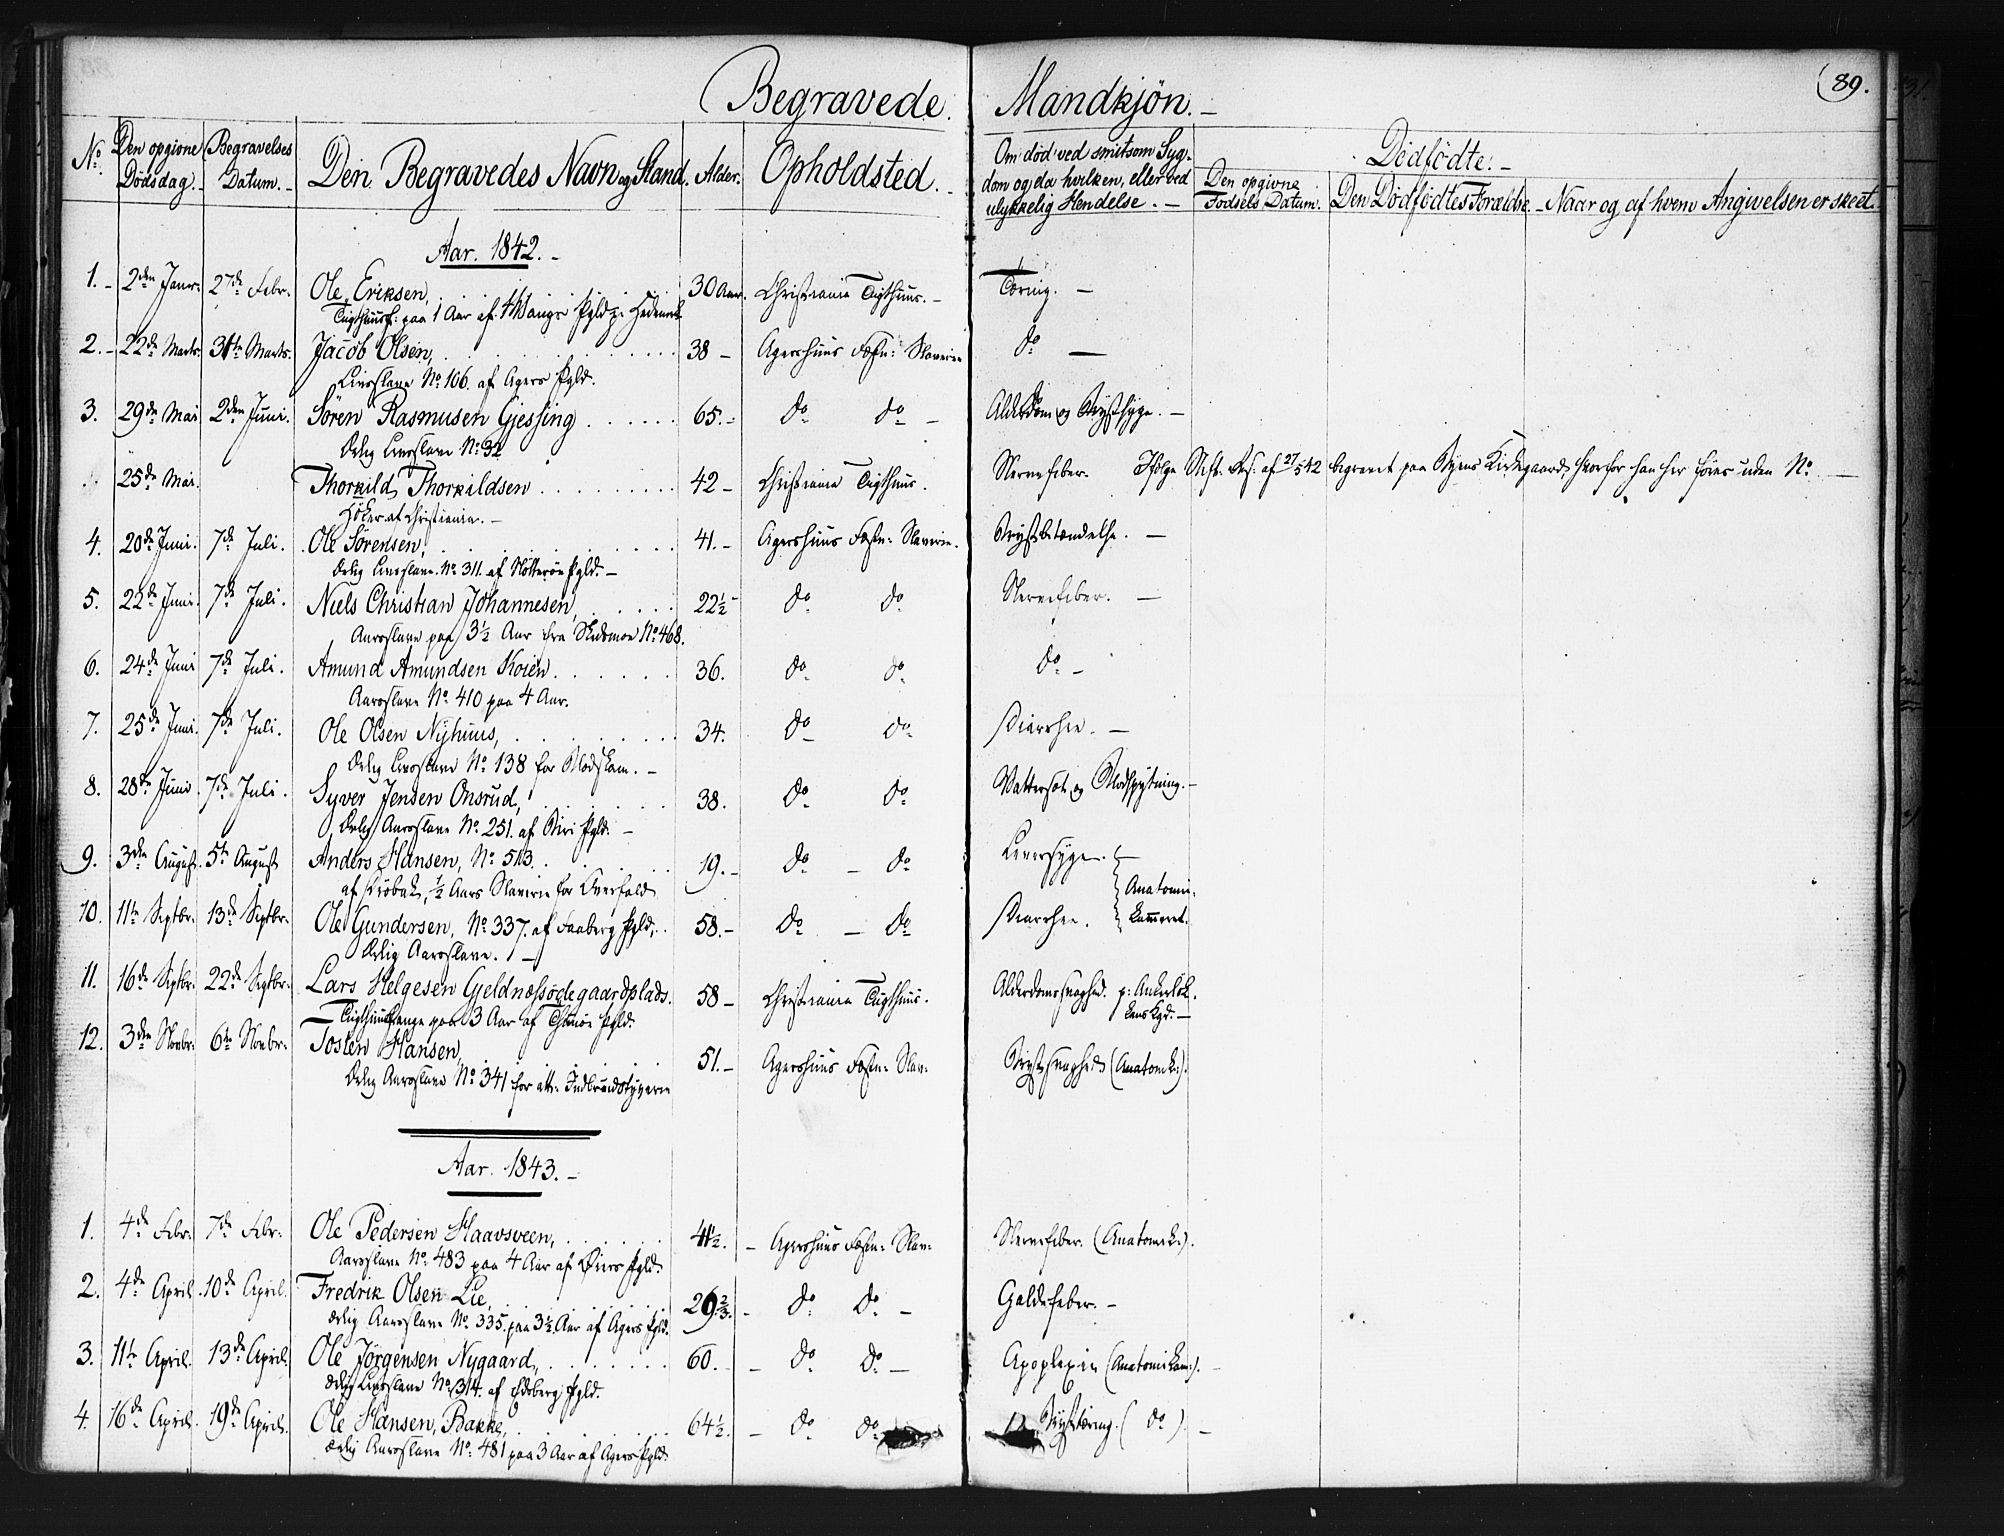 Begravede Mandkjøn. –
89.
No. Den opgivne Dødsdag. – Begravelses Datum. – Den Begravedes Navn og Stand. Alder. Opholdsted. – Om død ved smitsom Sygdom og da hvilken, eller ved ulykkelig Hendelse. – Dødfødte. –
Den opgivne Fødsels Datum. Den Dødfødtes Forældre. – Naar og af hvem Angivelsen er skeet.
Aar. 1842. –
1. – 2den Janr: 27de Febr. Ole Eriksen, 30 Aar. Christiania Tugthuus. – Tæring. –
Tugthuusf: paa 1 Aar af Vangs Pgld p: Hedemk
2. – 22de Marts. 31te Marts. Jacob Olsen, 38 – Agershuus Fæstn: Slaverie do –
Livsslave No. 106. af Agers Pgld.
3. 29de Mai 2den Juni. Søren Rasmusen Gjessing 65. – do do – Alderdom og Brystsyge. –
Ærlig Livsslave No. 32
25de Mai. Thorkild Thorkildsen 42 – Christiania Tugthuus. Nervefeber. Ifølge Stift. Res: af 27/5 42 begravet paa Byens Kirkegaard, hvorfor han her føres uden No. –
Høker af Christiania. –
4. 20de Juni. 7de Juli. Ole Sørensen, 41. – Agershuus Fæstn: Slaverie. Brystbetændelse. –
Ærlig Livsslave. No. 311. af Nøtterøe Pgld. –
5. 22de Juni. 7de Juli. Niels Christian Johannesen, 22½ – do do Nervefeber. –
Aarsslave paa 3½ Aar fra Skedsmoe No. 468.
6. 24de Juni 7de Juli. Amund Amundsen Koien 36. do do do –
Aarsslave No. 410 paa 4 Aar.
7. 25de Juni. 7de Juli. Ole Olsen Nÿhuus, 34. do do Diarrhee. –
Ærlig Livsslave No. 138 for Blodskam. –
8. 28de Juni 7de Juli. Syver Jensen Onsrud, 38. do do Vattersot og Blodspytning. –
Ærlig Aarsslave No. 251. af Biri Pgld. –
9. 3den August. 5te August Anders Hansen, No. 513. 19. – do – do Leversyge. –
af Drøbak, ½ Aars Slaverie for Overfald
Anatomi-
kammeret.
10. 11te Septbr. 13de Septbr. Ole Gundersen, No. 337. af Faaberg Pgld, 58. – do – do Diarrhee.
Ærlig Aarsslave. –
11. 16de Septbr. 22de Septbr. Lars Helgesen Gjeldnæssødegaardsplads. 58 – Christiania Tugthuus. Alderdomssvaghed. p: Ankerløk-
kens Kgd. –
Tugthuusfange paa 3 Aar af Pgld.
12. 3den Novbr: 6te Novbr: Tosten Hansen, 51. – Agershuus Fæstn: Slav: Brystsvaghed (Anatomik:).
Ærlig Aarsslave No. 341 for att: Indbrudstyverie
Aar. 1843. –
1. 4de Febr: 7de Febr: Ole Pedersen Haavsveen, 41½. – Agershuus Fæstn: Slav: Nervefeber. (Anatomik:).
Aarsslave No. 483 paa 4 Aar af Øiers Pgld.
2. 4de April. 10de April. Fredrik Olsen Lie, 29⅔. – do do – Galdefeber. –
ærlig Aarsslave No. 335. paa 3½ Aar af Agers Pgld.
3. 11te April. 13de April. Ole Jørgensen Nygaard, 60. – do do – Apoplexie (Anatomikam:). –
ærlig Livsslave No. 314. af Edsberg Pgld.
4. 16de April. 19de April. Ole Hansen, Bakke, 64½. – do do Brysttæring. (do). –
ærlig Aarsslave No. 481 paa 3 Aar af Agers Pgld.